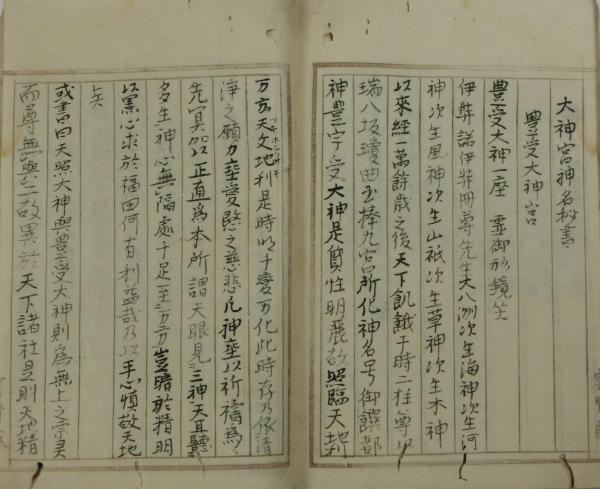 大神宮神名秘書
豊受大神宮
豊受大神一座 霊御形鏡矣
伊弉諾伊弉冊尊先生大八洲次生海神次生河
神次生風神次生山祇次生草神次生木神
以来経一萬餘歳之後天下飢餓于時二柱尊以
瑞八坂瓊曲玉捧九宮所化神名号御饌都
神豊宇受大神是質性明麗故照臨天地利
万方天文地利是時明千變万化此時存乃依清
浄之願力垂愛愍之慈悲凡神垂以祈禱為
先冥加以正直為本所謂天眼見三神天耳聽
多生神心無隔處于足至万方豈暗於精明
以黒心求於福田何有利益哉乃以手心慎敬天地
矣
或書曰天照大神與豊受大神則為無上之宗灵
而尊無與二故異於天下諸社是則天地精